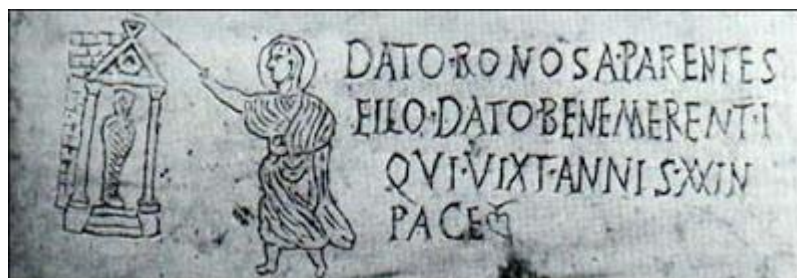 DATO·RONOSA·PARENTES
FILLO·DATO·BENEMERENT·I
QVI·VIXT·ANNIS·XXIN
PACE